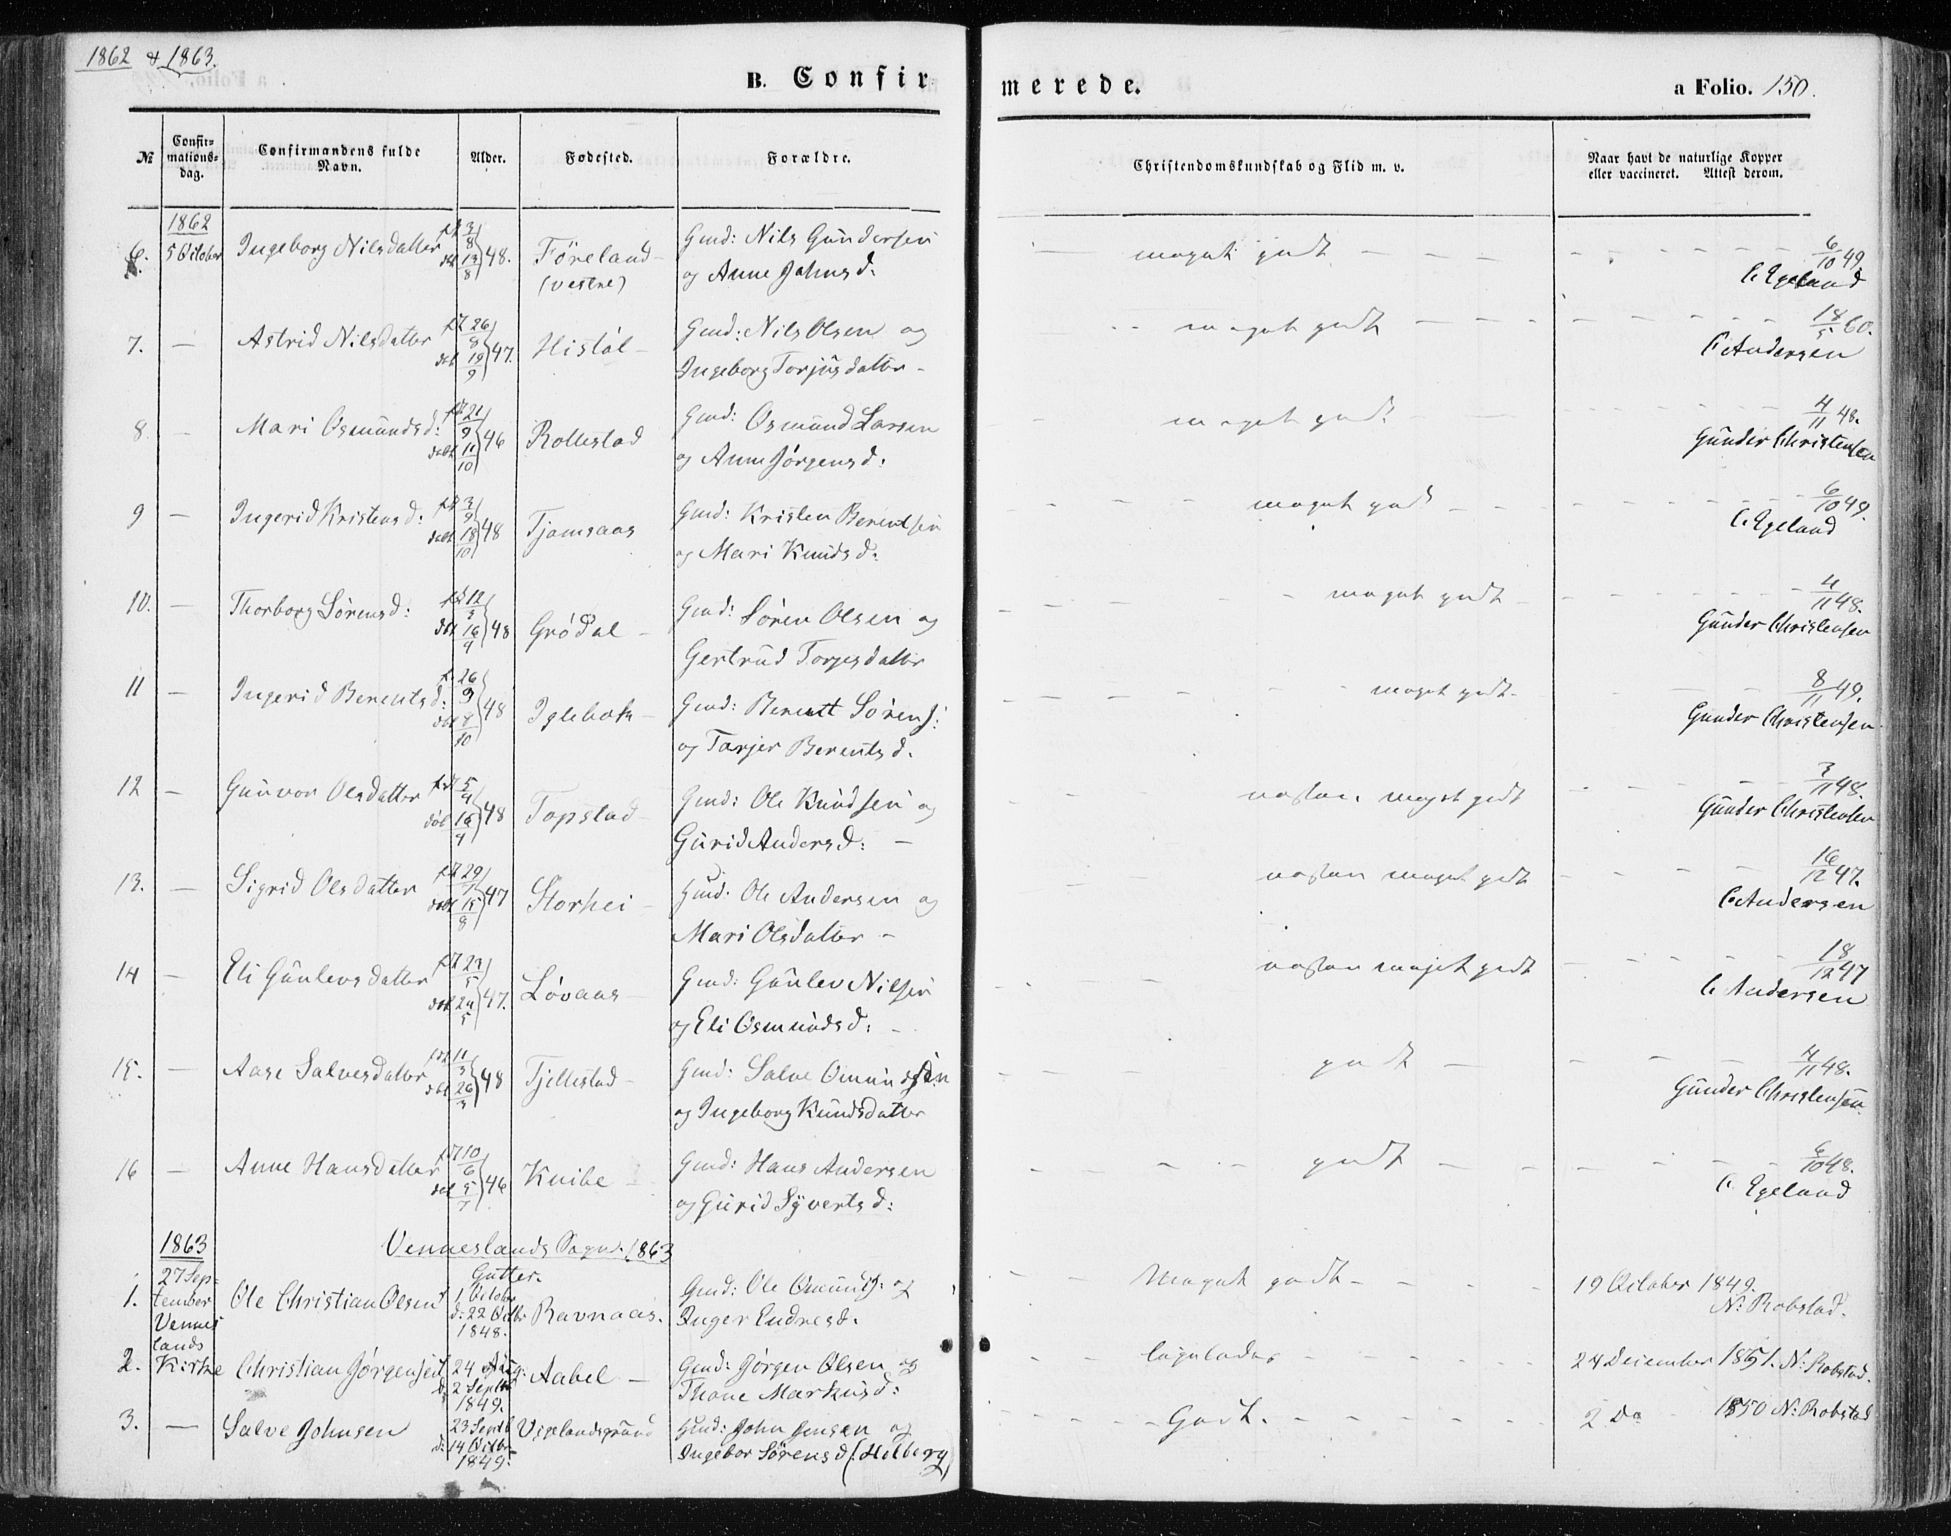 1862 & 1863.
B. Confirmerede.
a Folio. 150.
No
Confirmations-dag.
Confirmandens fulde Navn.
Alder.
Fødested.
Forældre.
Christendomskundskab og Flid m. v.
Naar havt de naturlige Kopper eller vaccineret. Attest derom.
1862
6. 5 October Ingeborg Nilsdatter 3/8 13/8 48. Føreland (vestre) Gmd: Nils Gundersen og Anne Johnsd. meget godt 6/10 49. C. Egeland
7. — Astrid Nilsdatter 26/8 19/9 47. Histøl Gmd: Nils Olsen og Ingeborg Torjusdatter meget godt 18/5 60. C. Andersen
8 — Mari Osmundsd: 21/9 11/10 46 Rollestad Gmd: Osmund Larsen og Anne Jørgensd: meget godt 4/11 48. Gunder Christensen
9 — Ingerid Kristensd: 3/9 18/10 48 Tjomsaas Gmd: Kristen Berentsen og Mari Knudsd: meget godt 6/10 49. C. Egeland
10. — Thorborg Sørensd: 12/3 16/4 48 Grødal Gmd: Søren Olsen og Gertrud Torjesdatter meget godt 4/11 48. Gunder Christensen
11 — Ingerid Berentsd: 26/9 8/10 48 Iglebak Gmd: Berentt Sørens: og Tarjer Berentsd. meget godt 8/11 49. Gunder Christensen
12 — Gunvor Olsdatter 5/4 16/4 48 Topstad Gmd: Ole Knudsen og Gurid Andersd: næsten meget godt 3/11 48. Gunder Christensen
13. — Sigrid Olsdatter 29/7 15/8 47 Storhei Gmd: Ole Andersen og Mari Olsdatter næsten meget godt 16/12 47. C. Andersen
14 — Eli Gunlevsdatter 23/5 24/5 47. Løvaas Gmd: Gunlev Nilsen og Eli Osmundsd: næsten meget godt 18/12 47 C. Andersen
15. — Aase Salvesdatter 11/3 26/3 48 Tjellestad Gmd: Salve Omundsen og Ingeborg Knudsdatter godt 4/11 48. Gunder Christensen
16 — Anne Hansdatter 10/6 5/7 46 Knibe Gmd: Hans Andersen og Gurid Syvertsd: godt 6/10 48. C. Egeland
1863 Venneslands Sogn. 1863
Gutter.
1. 27 September Venneslands Kirke Ole Christian Olsen 1 October d: 22 Octbr 1848. Ravnaas. Gmd: Ole Omunds: og Inger Endresd. Meget godt 19 October 1849. N: Robstad.
2. Christian Jørgensen 24 Aug: d: 2 Septbr 1849. Aabel Gmd: Jørgen Olsen og Thone Markusd: 24 December 1851. N: Robstad.
3. — Salve Johnsen 23 Septb d: 14 Octbr 1849. Viplandsgrund Gmd: John Jensen og Ingebor Sørensd (Helberg) Godt. 2 Do 1850 N: Robstad